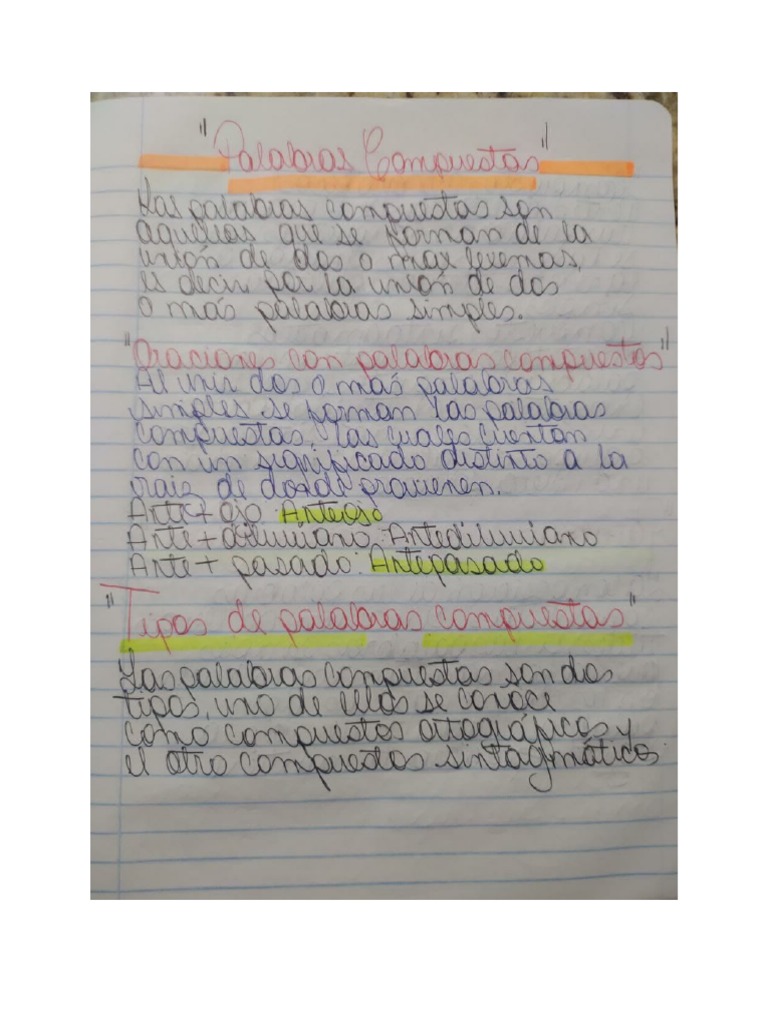 "Palabras Compuestas"
Las palabras compuestas son
aquellas que se forman de la
unión de dos o mas lexemas,
es decir por la unión de dos
o más palabras simples.
"Oraciones con palabras compuestas"
Al unir dos o más palabras
simples se forman las palabras
compuestas, las cuales cuentan
con un significado distinto a la
raiz de donde provienen.
Ante + ojo: Anteojo
Ante + diluviano: Antediluviano
Ante + pasado: Antepasado
"Tipos de palabras compuestas"
Las palabras compuestas son dos
tipos, uno de ellos se conoce
como compuestos ortográficos y
el otro compuestos sintagmáticos.